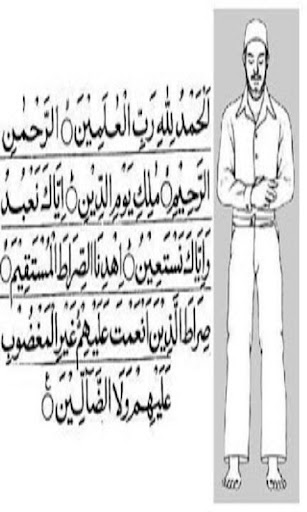 اَلْحَمْدُ لِلّٰهِ رَبِّ الْعٰلَمِيْنَ ۙ الرَّحْمٰنِ
الرَّحِيْمِ ۙ مٰلِكِ يَوْمِ الدِّيْنِ ۙ اِيَّاكَ نَعْبُدُ
وَاِيَّاكَ نَسْتَعِيْنُ ۙ اِهْدِنَا الصِّرَاطَ الْمُسْتَقِيْمَ ۙ
صِرَاطَ الَّذِيْنَ اَنْعَمْتَ عَلَيْهِمْ غَيْرِ الْمَغْضُوْبِ
عَلَيْهِمْ وَلَا الضَّآلِّيْنَ ۙ